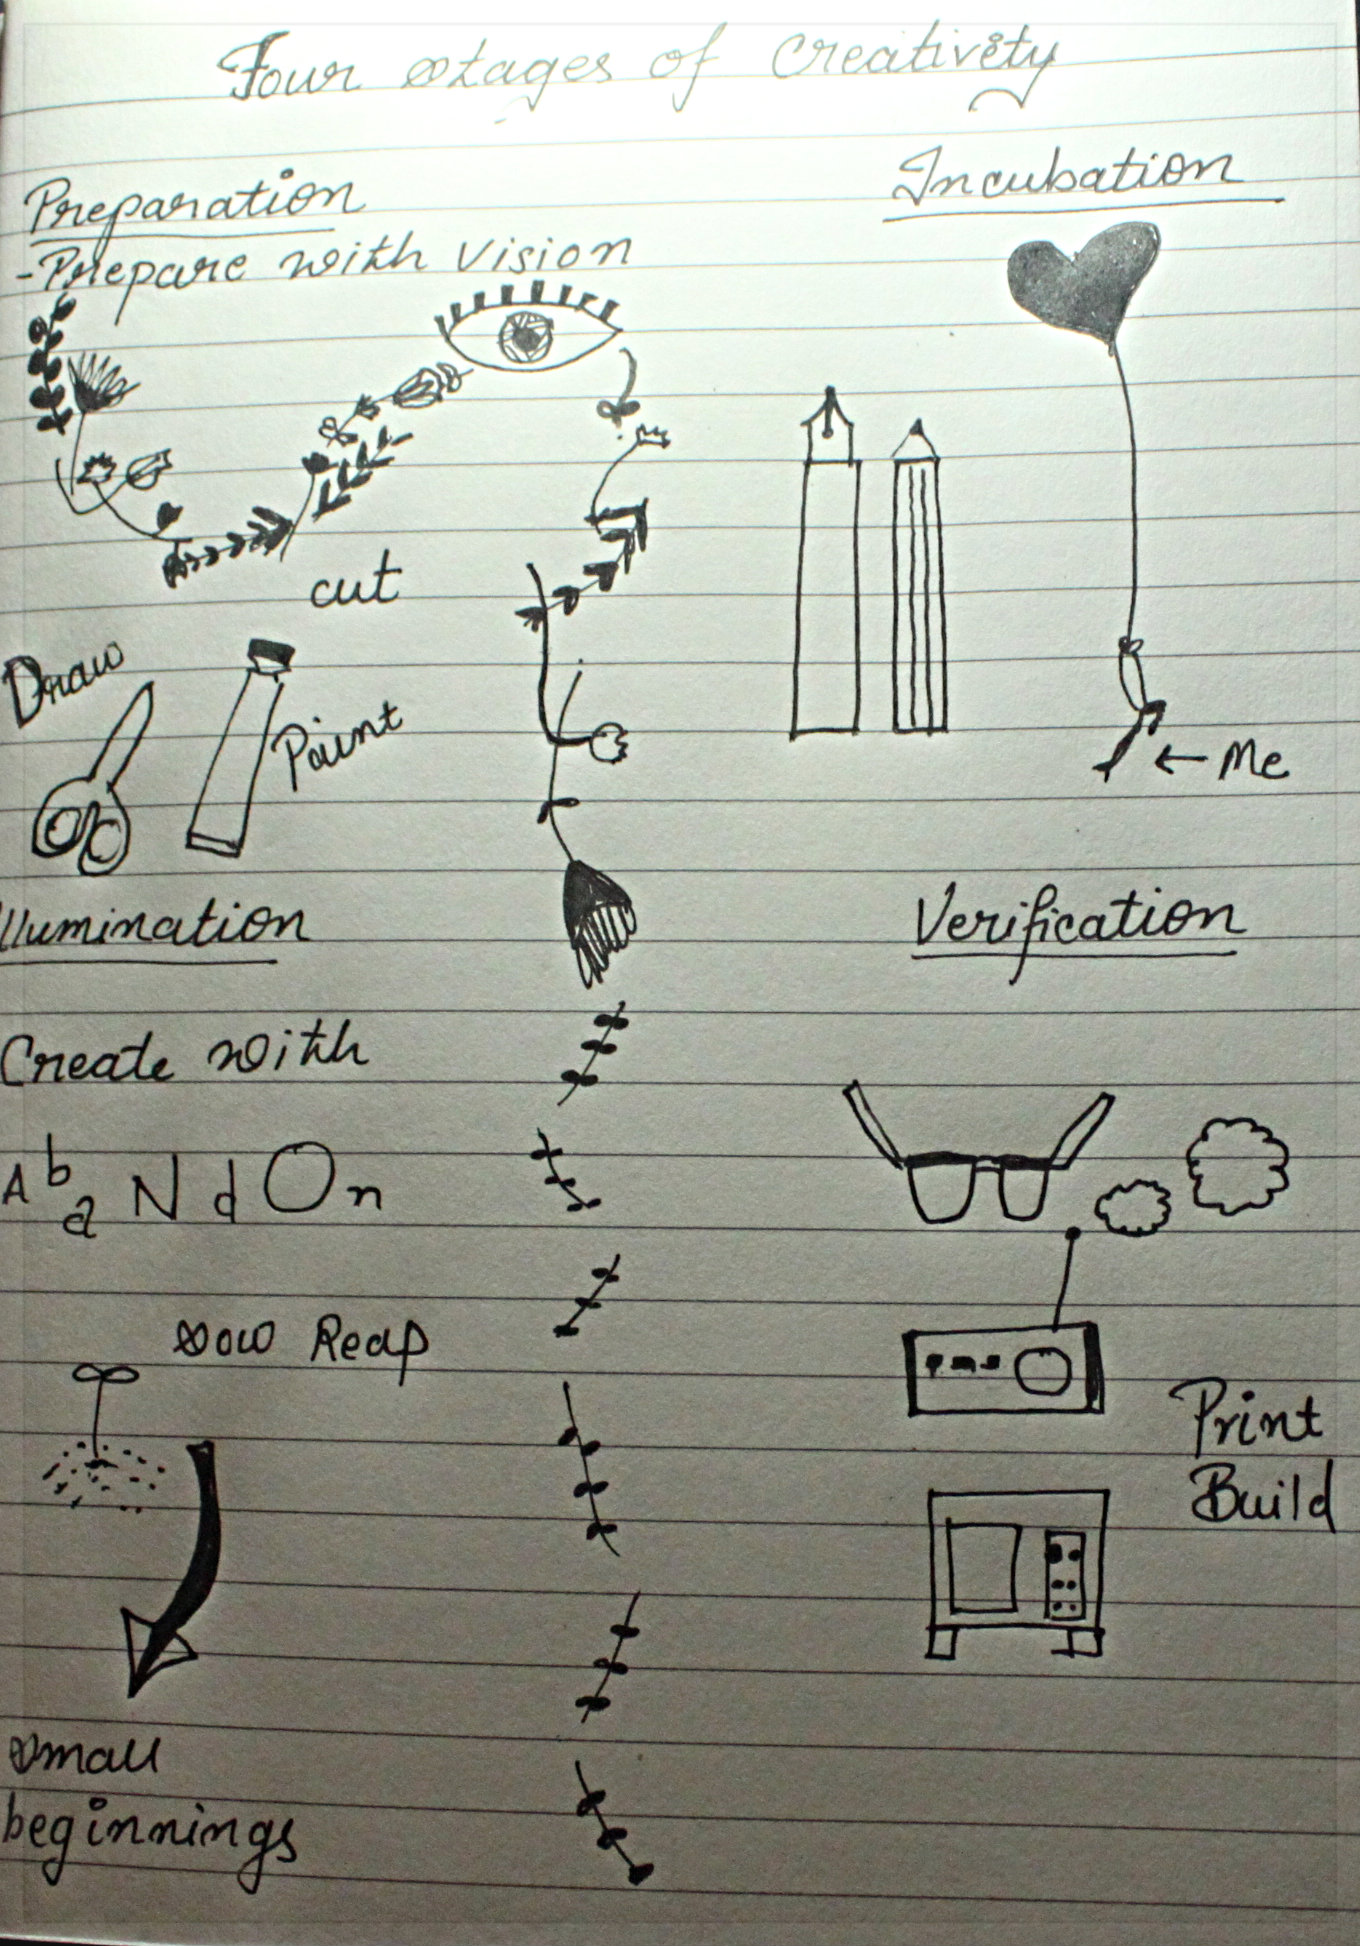 Four stages of Creativity
Preparation
- Prepare with Vision
cut
Draw
Paint
Incubation
← Me
Illumination
Create with
AbaNdOn
sow Reap
small
beginnings
Verification
Print
Build